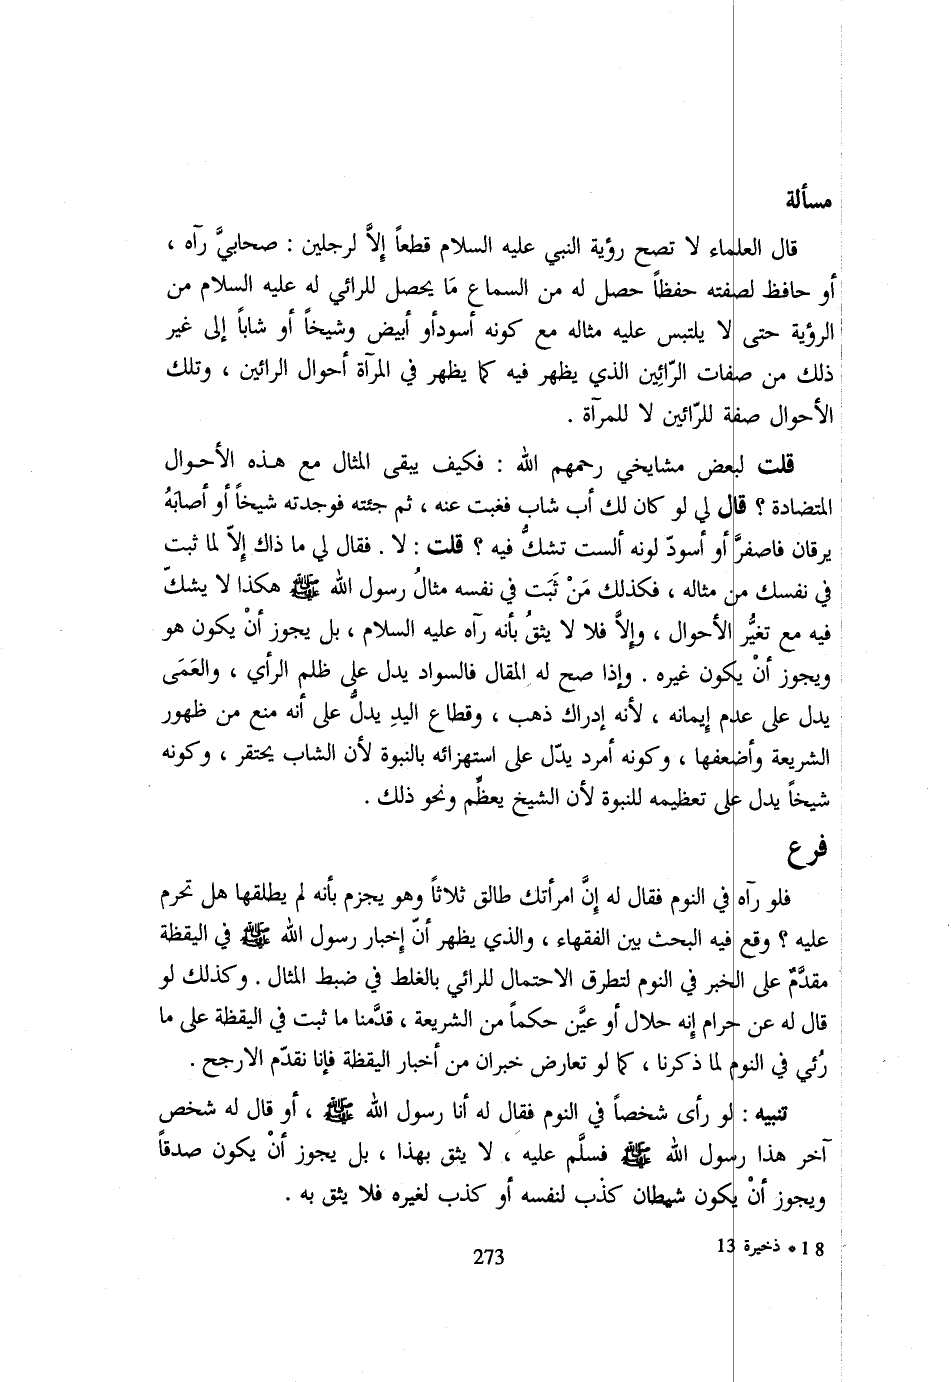 مسألة
قال العلماء لا تصح رؤية النبي عليه السلام قطعاً إلاَّ لرجلين : صحابيَّ رآه ،
أو حافظ لصفته حفظاً حصل له من السماع مَا يحصل للرائي له عليه السلام من
الرؤية حتى لا يلتبس عليه مثاله مع كونه أسودأو أبيض وشيخاً أو شاباً إلى غير
ذلك من صفات الرّائِين الذي يظهر فيه كما يظهر في المرآة أحوال الرائين ، وتلك
الأحوال صفة للرّائين لا للمرآة .
قلت لبعض مشايخي رحمهم الله : فكيف يبقى المثال مع هـذه الأحـوال
المتضادة ؟ قال لي لو كان لك أب شاب فغبت عنه ، ثم جئته فوجدته شيخاً أو أصابَهُ
يرقان فاصفرَّ أو أسودّ لونه ألست تشكُّ فيه ؟ قلت : لا . فقال لي ما ذاك إلاّ لما ثبت
في نفسك من مثاله ، فكذلك مَنْ ثَبَت في نفسه مثالُ رسول الله ﷺ هكذا لا يشكّ
فيه مع تغيُّر الأحوال ، وإلاَّ فلا لا يثقُ بأنه رآه عليه السلام ، بل يجوز أنْ يكون هو
ويجوز أنْ يكون غيره . وإذا صح له المقال فالسواد يدل على ظلم الرأي ، والعَمَى
يدل على عدم إيمانه ، لأنه إدراك ذهب ، وقطاع اليدِ يدلُّ على أنه منع من ظهور
الشريعة وأضعفها ، وكونه أمرد يدّل على استهزائه بالنبوة لأن الشاب يحتقر ، وكونه
شيخاً يدل على تعظيمه للنبوة لأن الشيخ يعظَّم ونحو ذلك .
فرع
فلو رآه في النوم فقال له إنَّ امرأتك طالق ثلاثاً وهو يجزم بأنه لم يطلقها هل تحرم
عليه ؟ وقع فيه البحث بين الفقهاء ، والذي يظهر أنّ إخبار رسول الله ﷺ في اليقظة
مقدَّمٌ على الخبر في النوم لتطرق الاحتمال للرائي بالغلط في ضبط المثال . وكذلك لو
قال له عن حرام إنه حلال أو عيَّن حكماً من الشريعة ، قدَّمنا ما ثبت في اليقظة على ما
رُئي في النوم لما ذكرنا ، كما لو تعارض خبران من أخبار اليقظة فإنا نقدّم الارجح .
تنبيه : لو رأى شخصاً في النوم فقال له أنا رسول الله ﷺ ، أو قال له شخص
آخر هذا رسول الله ﷺ فسلَّم عليه ، لا يثق بهذا ، بل يجوز أنْ يكون صدقاً
ويجوز أنْ يكون شيطان كذب لنفسه أو كذب لغيره فلا يثق به .
18 * ذخيرة 13
273